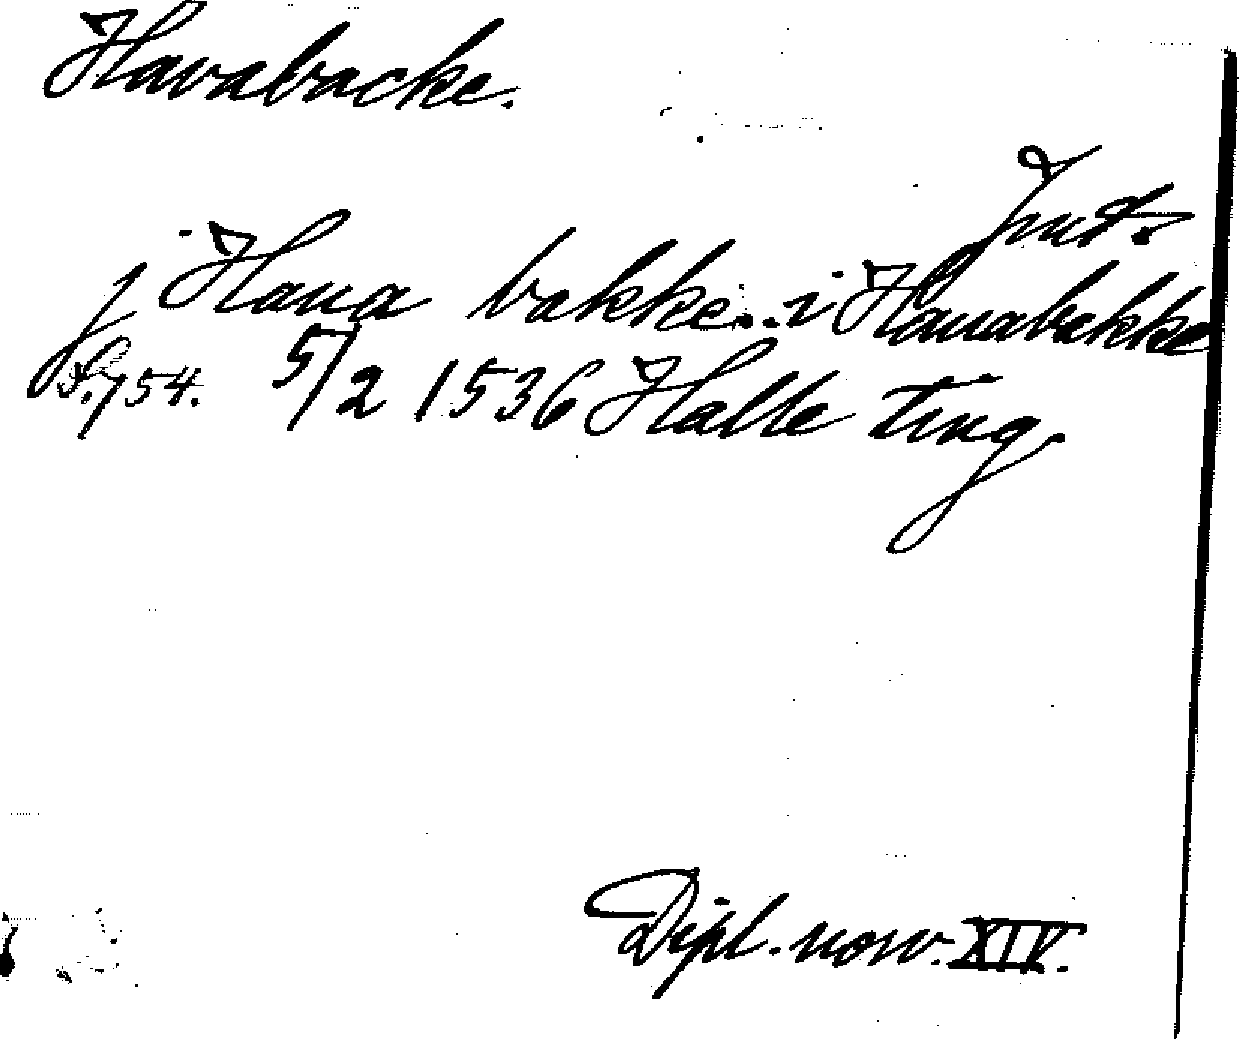 Havabacke.
j Haua bakke.. i Hauabekke
S. 754. 5/2 1536 Halle ting
Dipl. norv. XIV.